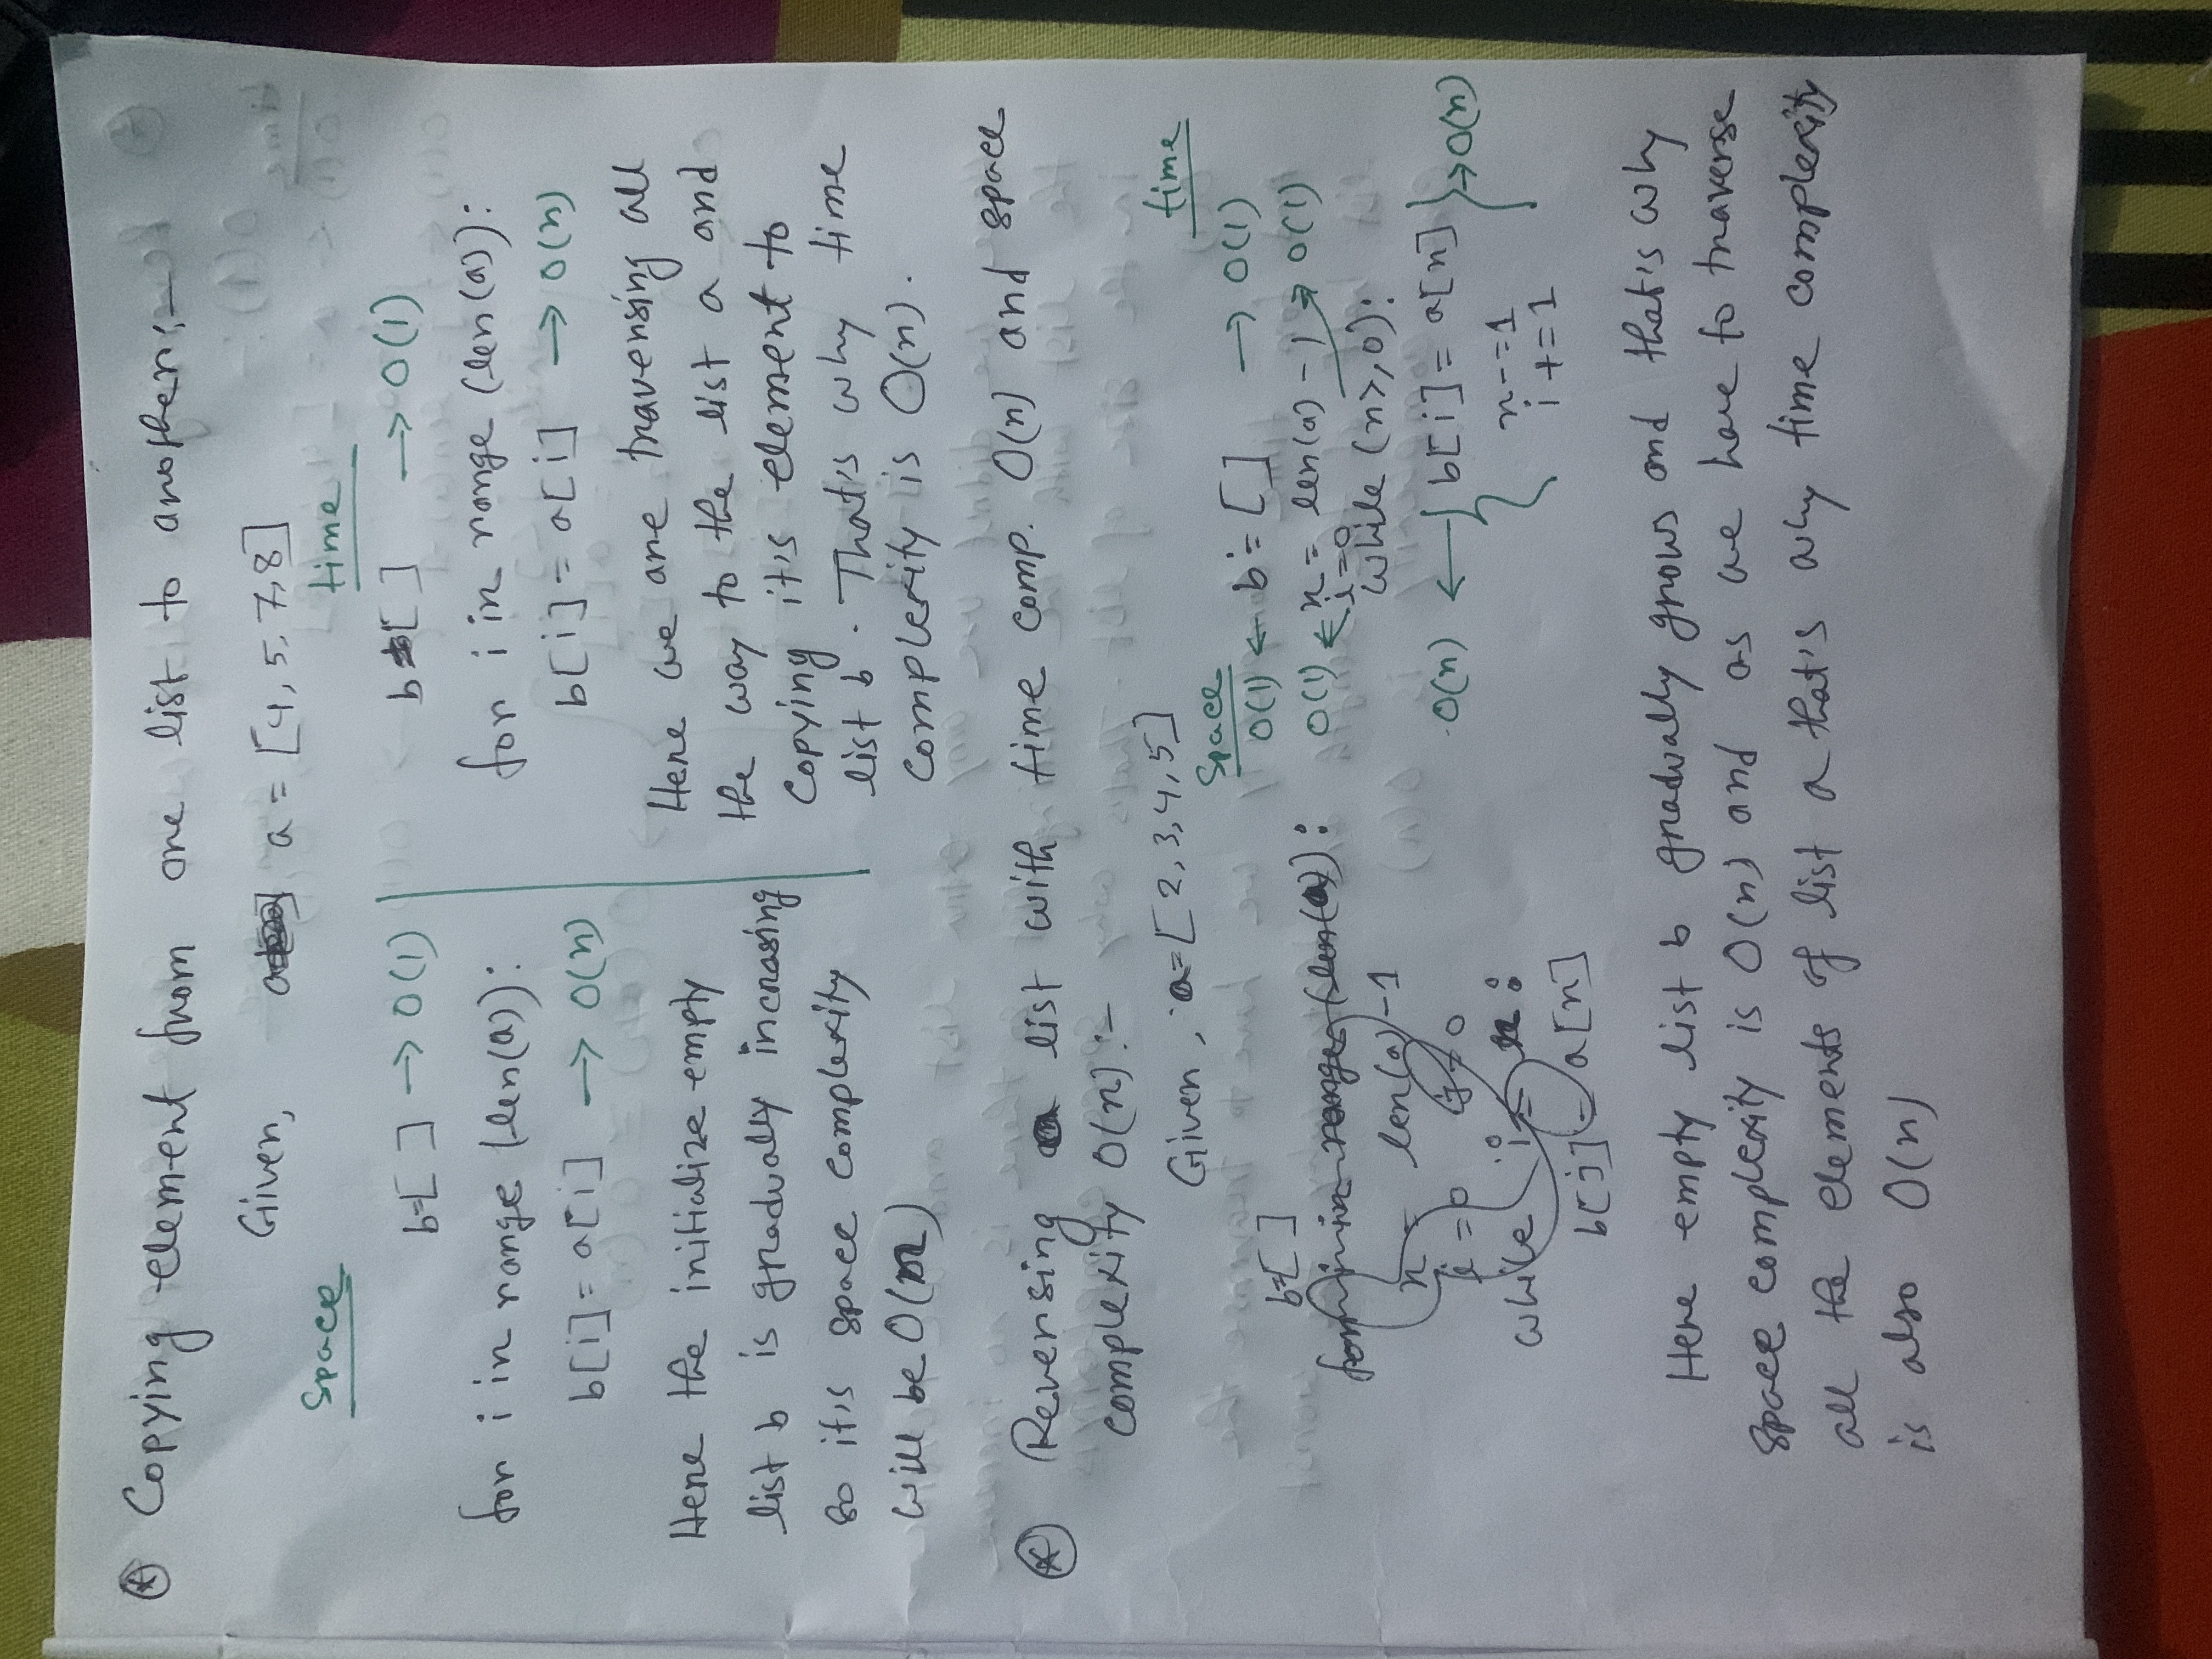 Copying element from one list to another:-
Given, a = [4, 5, 7, 8]
Space
b=[ ] → O(1)
for i in range (len(a)):
b[i] = a[i] → O(n)
Here the initialize empty
list b is gradually increasing
so it's space complexity
will be O(n)
time
b=[ ] → O(1)
for i in range (len(a)):
b[i] = a[i] → O(n)
Here we are traversing all
the way to the list a and
copying it's element to
list b. That's why time
complexity is O(n).
Reversing a list with time comp. O(n) and space
complexity O(n):-
Given, a=[2,3,4,5]
b=[ ]
for i in range (len(a)):
n = len(a)-1
i = 0 j = 0
while i = n:
b[j] = a[n]
Space time
O(1) ← b = [ ] → O(1)
O(1) ← n = len(a) - 1 → O(1)
i=0
while (n>,0):
O(n) ← { b[i] = a[n] } → O(n)
n-=1
i +=1
Here empty list b gradually grows and that's why
space complexity is O(n) and as we have to traverse
all the elements of list a that's why time complexity
is also O(n)